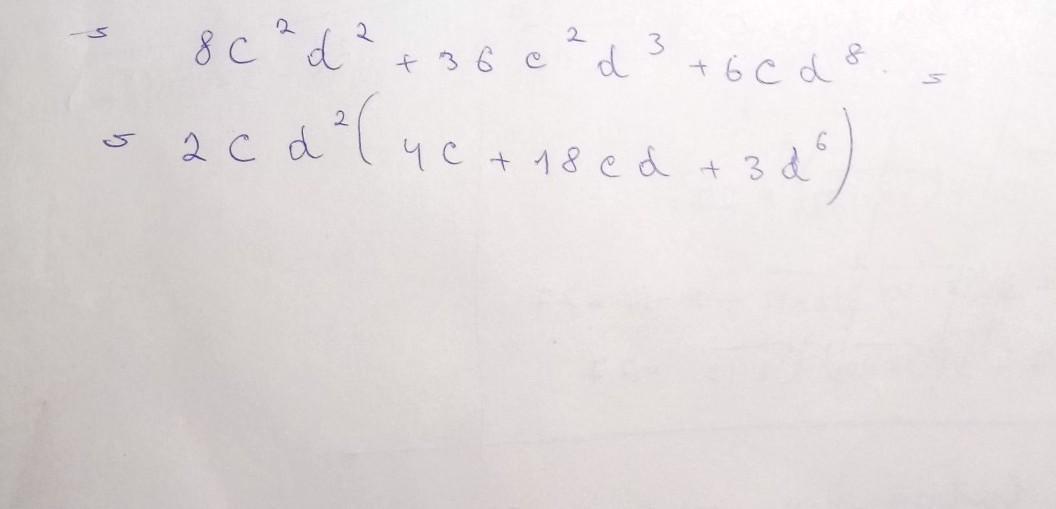 = 8c²d² + 36c²d³ + 6cd⁸ =
= 2cd²(4c + 18cd + 3d⁶)